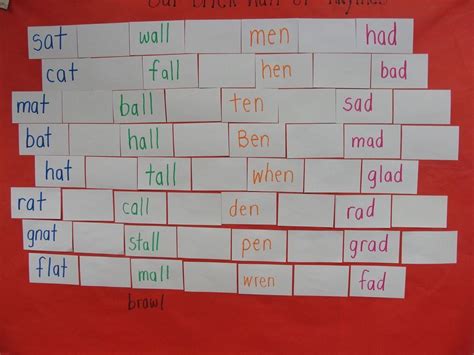 Our Brick Wall of Rhymes
sat wall men had
cat fall hen bad
mat ball ten sad
bat hall Ben mad
hat tall when glad
rat call den rad
gnat stall pen grad
flat mall wren fad
brawl